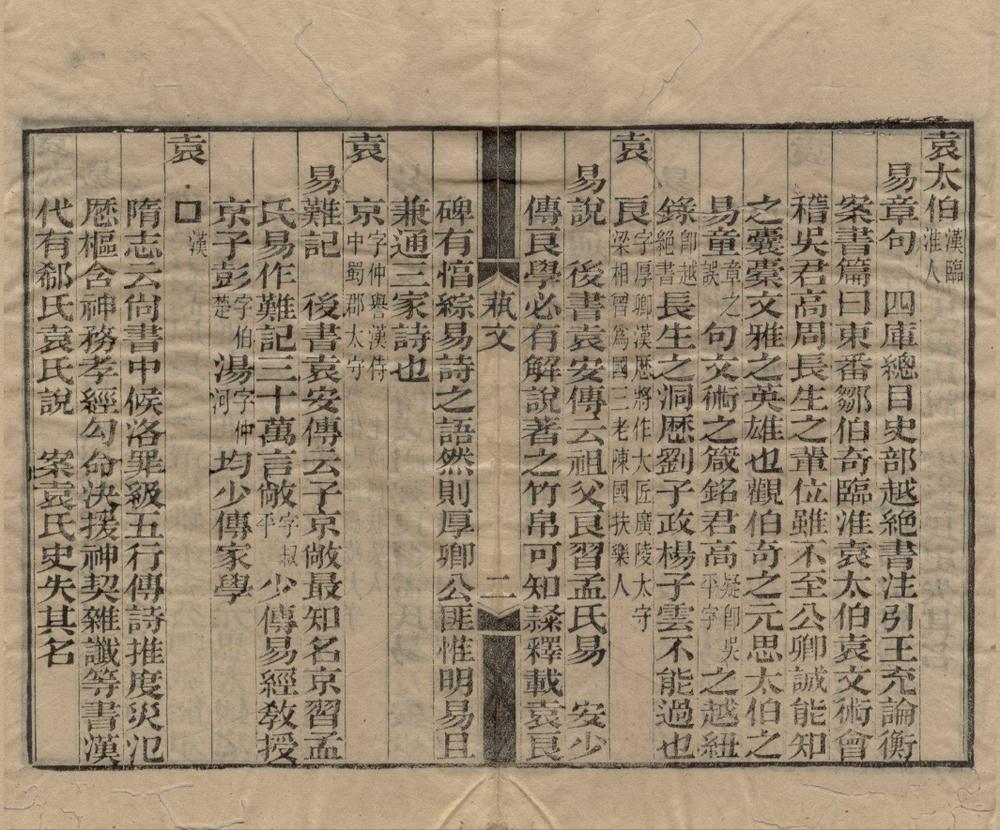 袁太伯漢臨淮人
易章句　四庫總目史部越絕書注引王充論衡
案書篇曰東番鄒伯奇臨淮袁太伯袁文術會
稽吳君高周長生之輩位雖不至公卿誠能知
之囊橐文雅之英雄也觀伯奇之元思太伯之
易童章之誤句文術之箴銘君高疑卽吳平字之越紐
錄卽越絕書長生之洞歷劉子政楊子雲不能過也
袁良字厚卿漢歷將作大匠廣陵太守梁相曾爲國三老陳國扶樂人
易說　後書袁安傳云祖父良習孟氏易　安少
傳良學必有解說著之竹帛可知隸釋載袁良
藝文　二
碑有慆綜易詩之語然則厚卿公匪惟明易且
兼通三家詩也
袁京字仲譽漢侍中蜀郡太守
易難記　後書袁安傳云子京敞最知名京習孟
氏易作難記三十萬言敞字叔平少傳易經敎授
京子彭字伯楚湯字仲河均少傳家學
袁□漢
隋志云尙書中候洛罪級五行傳詩推度災氾
歷樞含神務孝經勾命決援神契雜讖等書漢
代有郗氏袁氏說　案袁氏史失其名